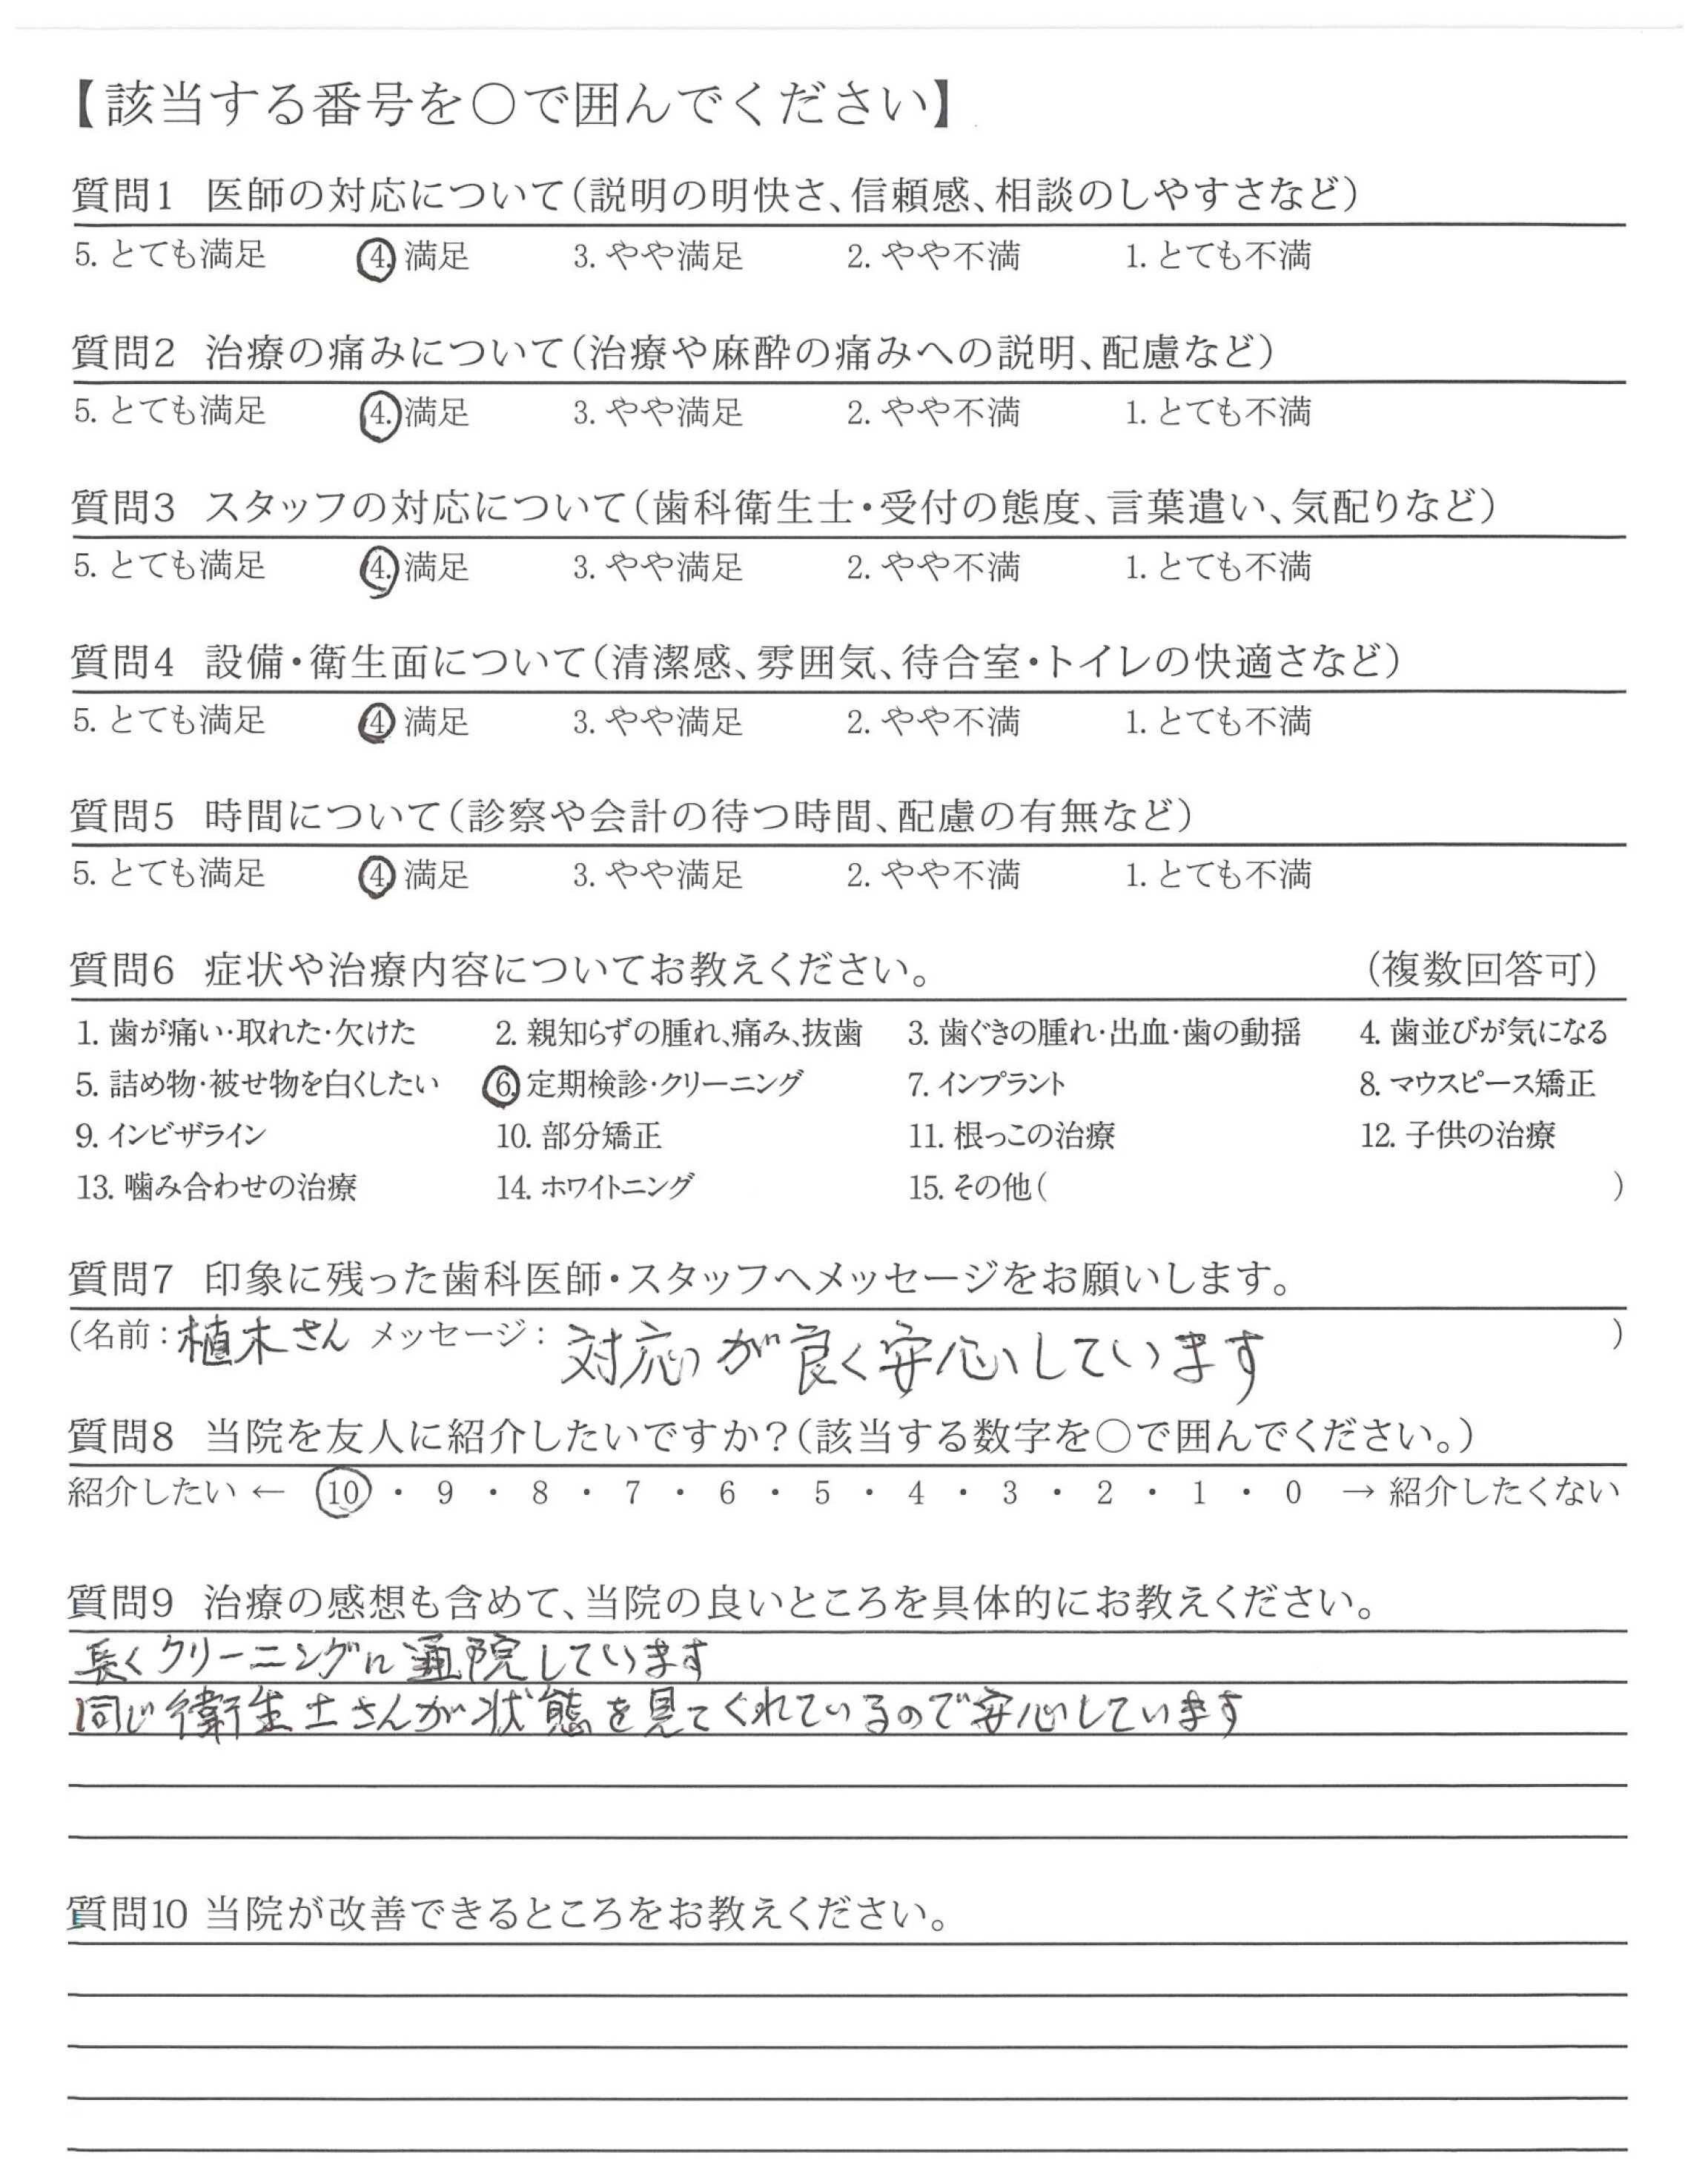 【該当する番号を〇で囲んでください】
質問1 医師の対応について(説明の明快さ、信頼感、相談のしやすさなど)
5. とても満足 4. 満足 3. やや満足 2. やや不満 1. とても不満
質問2 治療の痛みについて(治療や麻酔の痛みへの説明、配慮など)
5. とても満足 4. 満足 3. やや満足 2. やや不満 1. とても不満
質問3 スタッフの対応について(歯科衛生士・受付の態度、言葉遣い、気配りなど)
5. とても満足 4. 満足 3. やや満足 2. やや不満 1. とても不満
質問4 設備・衛生面について(清潔感、雰囲気、待合室・トイレの快適さなど)
5. とても満足 4. 満足 3. やや満足 2. やや不満 1. とても不満
質問5 時間について(診察や会計の待つ時間、配慮の有無など)
5. とても満足 4. 満足 3. やや満足 2. やや不満 1. とても不満
質問6 症状や治療内容についてお教えください。 (複数回答可)
1. 歯が痛い・取れた・欠けた 2. 親知らずの腫れ、痛み、抜歯 3. 歯ぐきの腫れ・出血・歯の動揺 4. 歯並びが気になる
5. 詰め物・被せ物を白くしたい 6. 定期検診・クリーニング 7. インプラント 8. マウスピース矯正
9. インビザライン 10. 部分矯正 11. 根っこの治療 12. 子供の治療
13. 噛み合わせの治療 14. ホワイトニング 15. その他( )
質問7 印象に残った歯科医師・スタッフへメッセージをお願いします。
(名前：植木さん メッセージ：対応が良く安心しています )
質問8 当院を友人に紹介したいですか？(該当する数字を〇で囲んでください。)
紹介したい ← 10 ・ 9 ・ 8 ・ 7 ・ 6 ・ 5 ・ 4 ・ 3 ・ 2 ・ 1 ・ 0 → 紹介したくない
質問9 治療の感想も含めて、当院の良いところを具体的にお教えください。
長くクリーニングに通院しています
同じ衛生士さんが状態を見てくれているので安心しています
質問10 当院が改善できるところをお教えください。